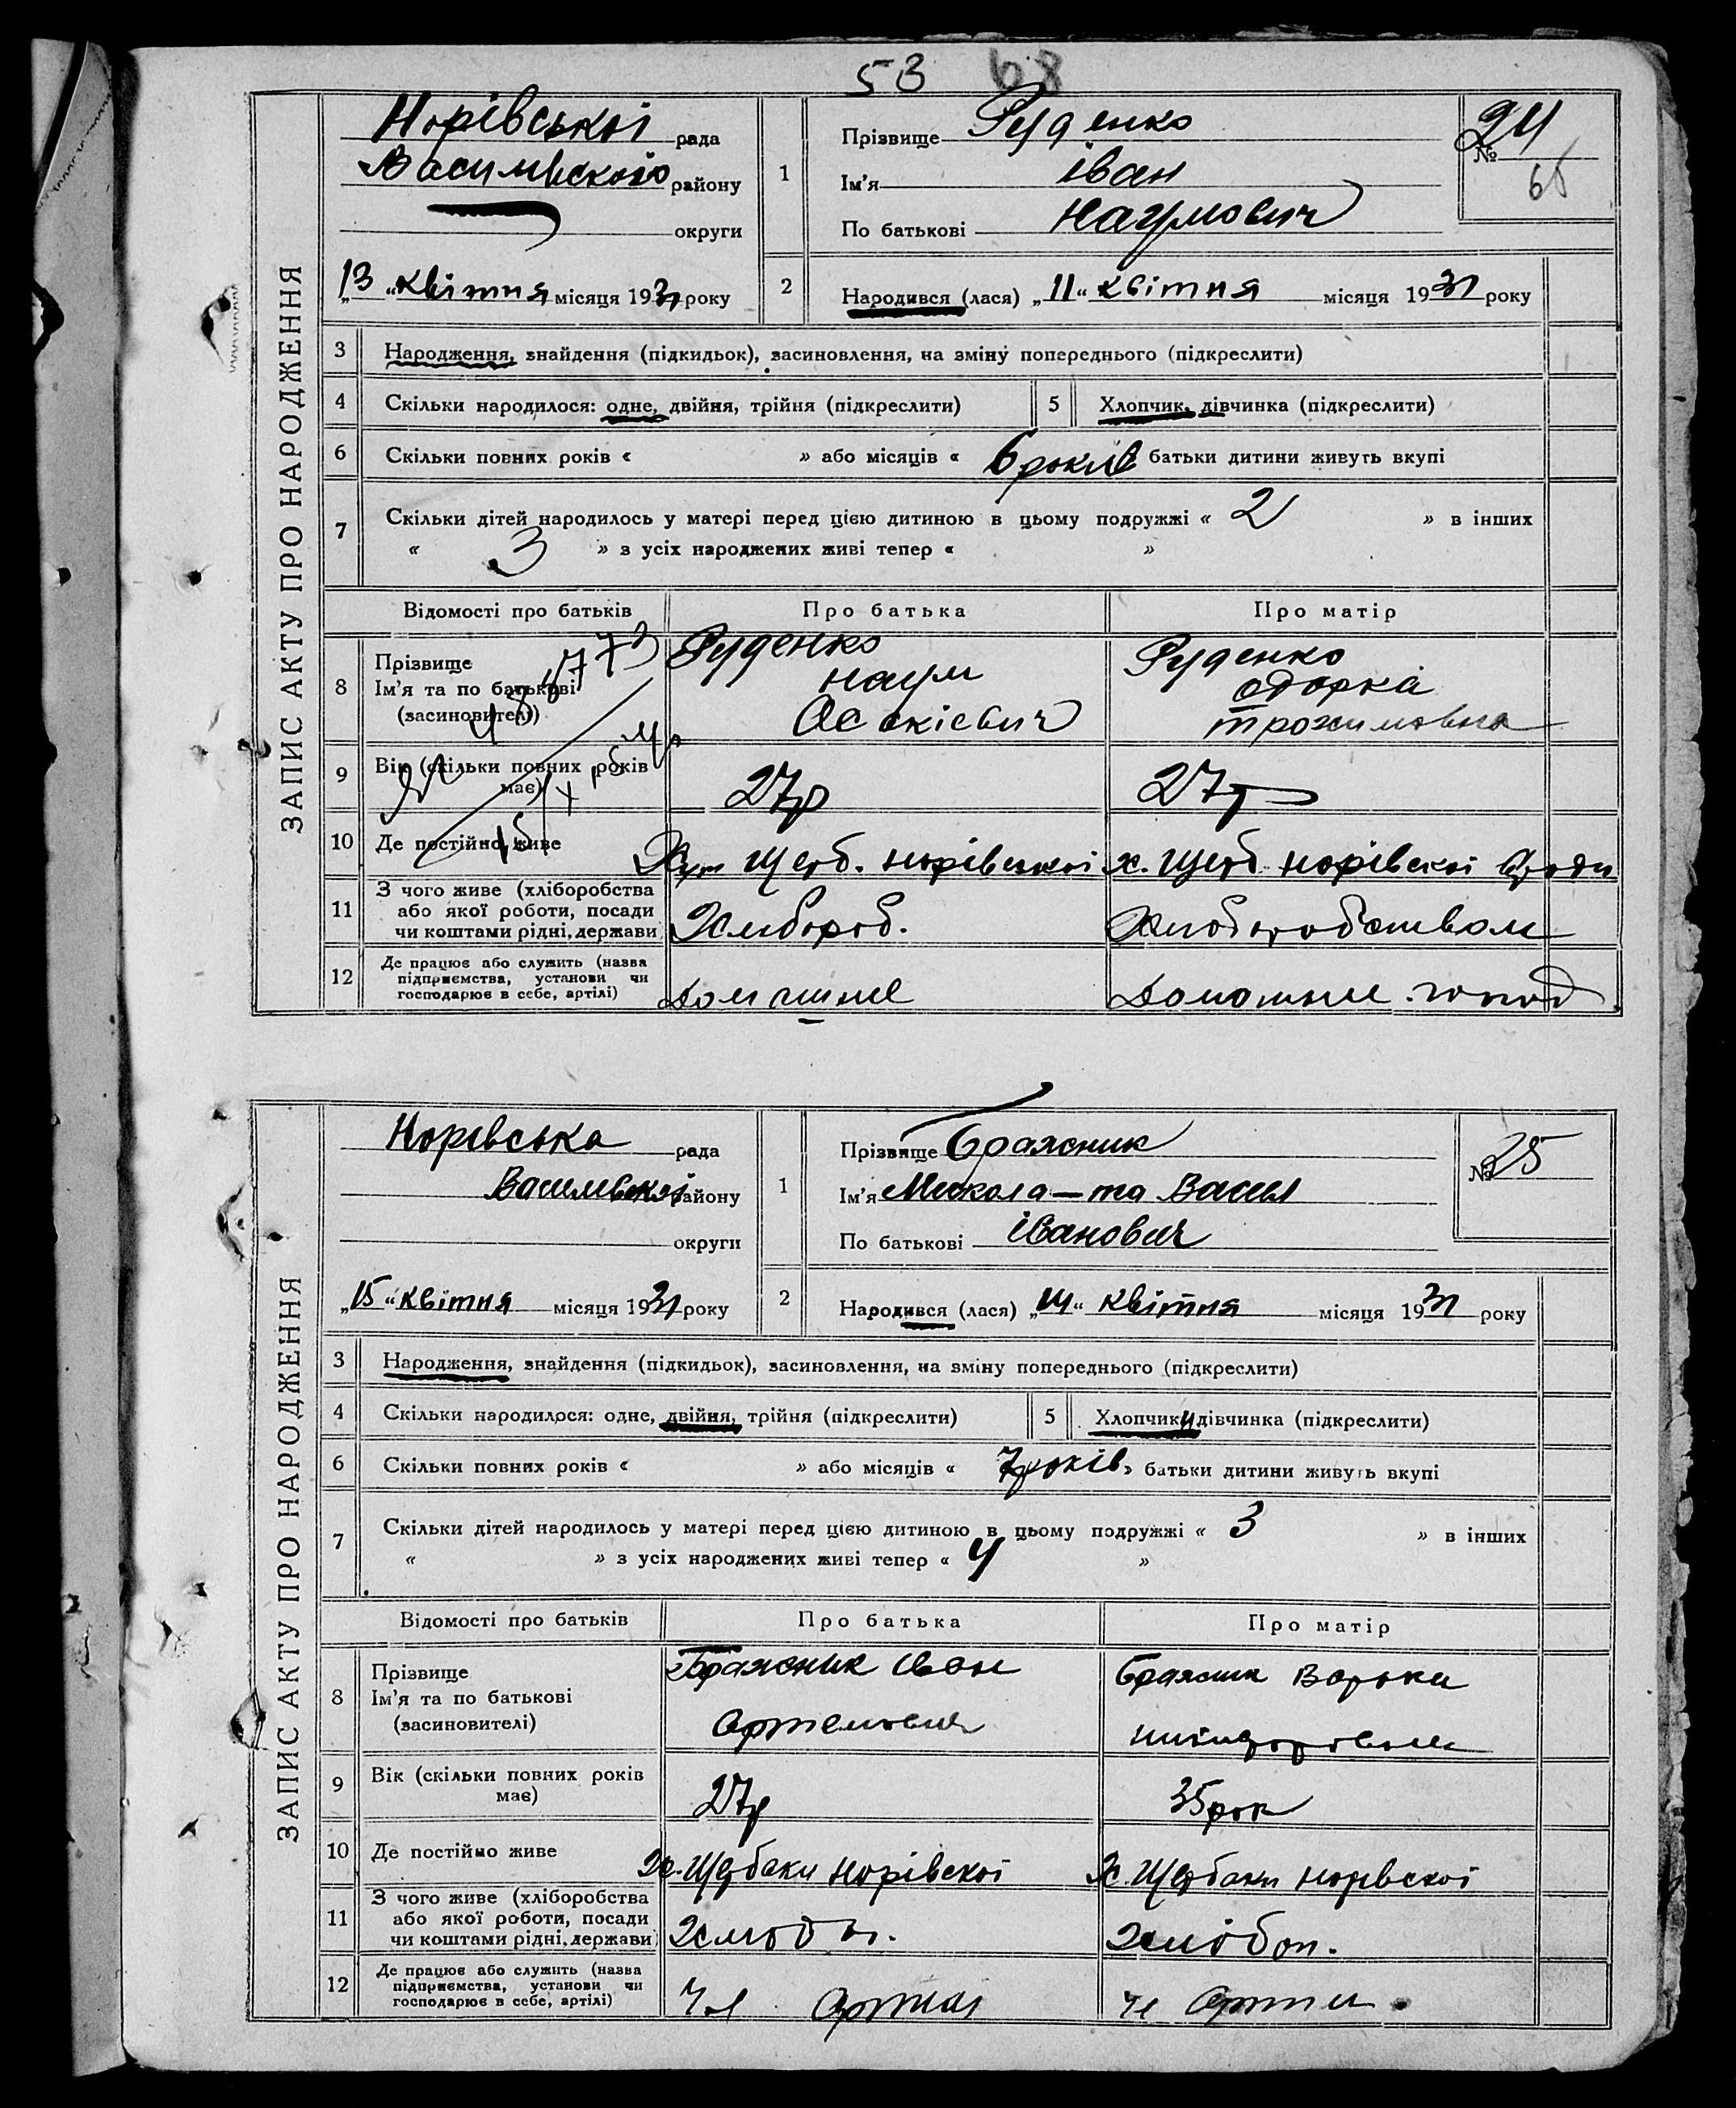 53 68
ЗАПИС АКТУ ПРО НАРОДЖЕННЯ
Норівської рада
Василівского району
округи
„13“ квітня місяця 1931 року
1
Прізвище Руденко
Ім'я іван
По батькові наумович
№ 24
2
Народився (лася) „11“ квітня місяця 1931 року
3 Народження, знайдення (підкидьок), засиновлення, на зміну попереднього (підкреслити)
4 Скільки народилося: одне, двійня, трійня (підкреслити)
5 Хлопчик, дівчинка (підкреслити)
6 Скільки повних років « » або місяців « 6 років батьки дитини живуть вкупі
7 Скільки дітей народилось у матері перед цією дитиною в цьому подружжі « 2 » в інших
« 3 » з усіх народжених живі тепер « »
Відомості про батьків Про батька Про матір
8 Прізвище
Ім'я та по батькові
(засновителі)
Руденко
наум
Руденко
одарка
трохимовна
9 Вік (скільки повних років
має)
27р
27р
10 Де постійно живе
Хут Щерб. норівської
х. Щерб норівскої
11 З чого живе (хліборобства
або якої роботи, посади
чи коштами рідні, держави
Хлібороб.
Хлиборобством
12 Де працює або служить (назва
підприємства, установи чи
господарює в себе, артілі)
ЗАПИС АКТУ ПРО НАРОДЖЕННЯ
Норівська рада
району
округи
„15“ квітня місяця 1931 року
1
Прізвище Бражник
Ім'я Микола — та Васил
По батькові іванович
№ 25
2
Народився (лася) „14“ квітня місяця 1931 року
3 Народження, знайдення (підкидьок), засиновлення, на зміну попереднього (підкреслити)
4 Скільки народилося: одне, двійня, трійня (підкреслити)
5 Хлопчики дівчинка (підкреслити)
6 Скільки повних років « » або місяців « 7 років » батьки дитини живуть вкупі
7 Скільки дітей народилось у матері перед цією дитиною в цьому подружжі « 3 » в інших
« » з усіх народжених живі тепер « 4 »
Відомості про батьків Про батька Про матір
8 Прізвище
Ім'я та по батькові
(засиновителі)
Бражник Иван
Артемович
Бражник Варька
9 Вік (скільки повних років
має)
27р
35рок
10 Де постійно живе
х. Щербаки норівскої
х. Щербаки норівскої
11 З чого живе (хліборобства
або якої роботи, посади
чи коштами рідні, держави)
12 Де працює або служить (назва
підприємства, установи чи
господарює в себе, артілі)
чл артілі
чл Артіли.